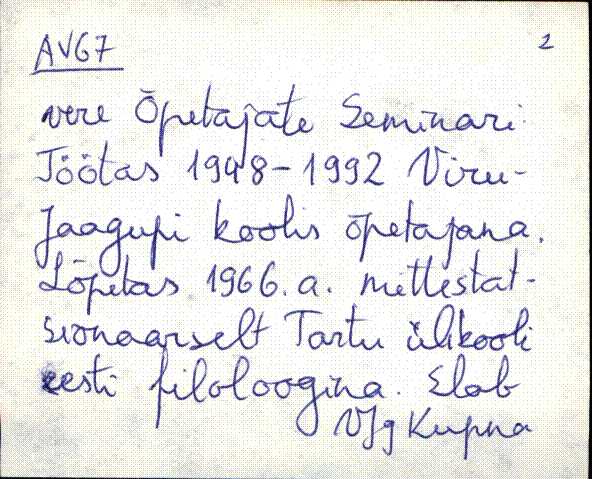 AV67 2
vere Õpetajate Seminari.
Töötas 1948-1992 Viru-
Jaagupi koolis õpetajana.
Lõpetas 1966.a. mittestat-
sionaarselt Tartu ülikooli
eesti filoloogina. Elab
VJg Kupna